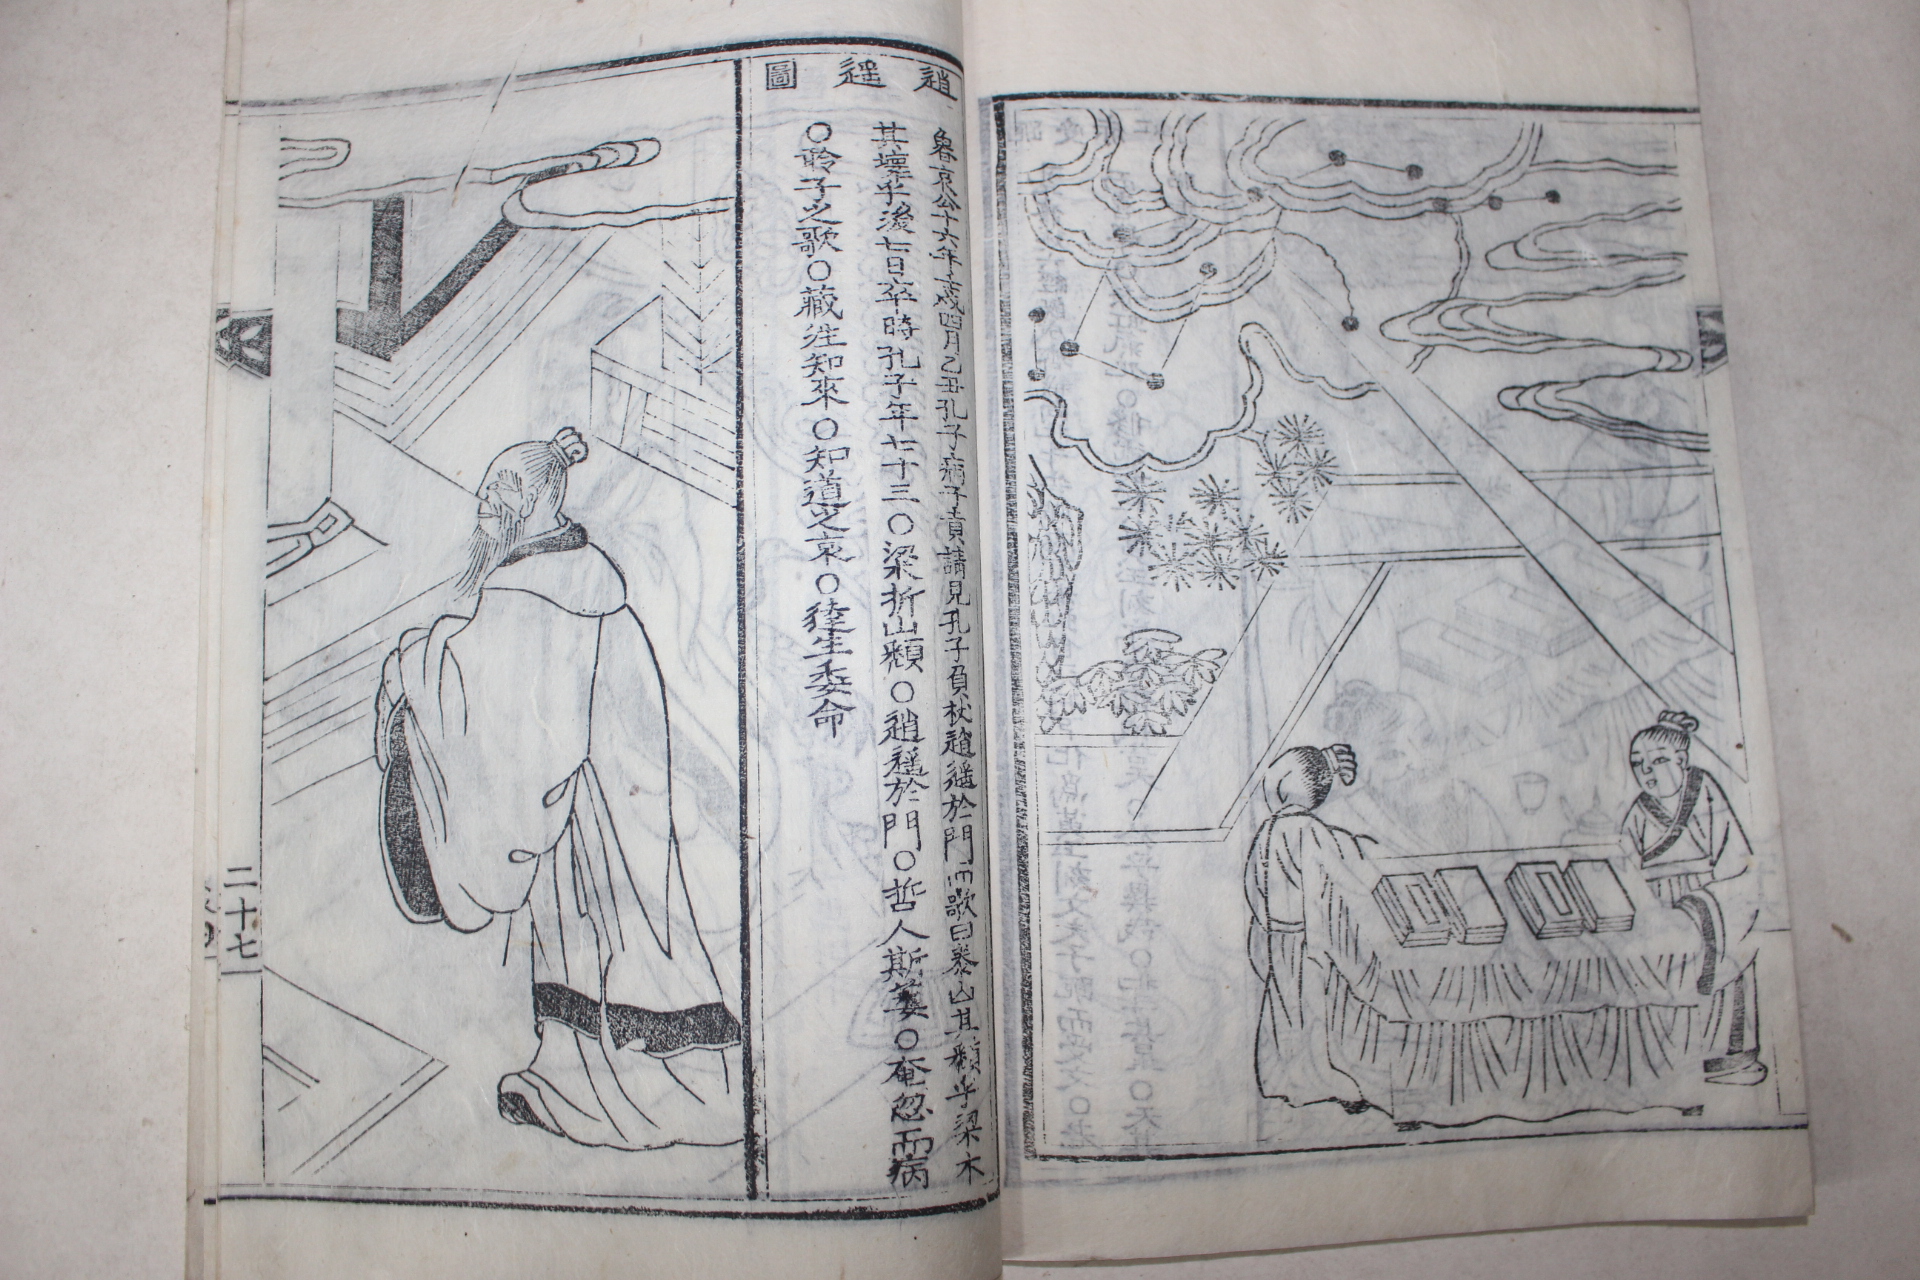 逍遥圖
魯哀公十六年壬戌四月乙丑孔子病子貢請見孔子負杖逍遥於門而歌曰泰山其頹乎梁木
其壞乎後七日卒時孔子年七十三○梁折山頹○逍遥於門○哲人斯萎○奄忽而病
○聆子之歌○藏往知來○知道之哀○徒生委命
二十七